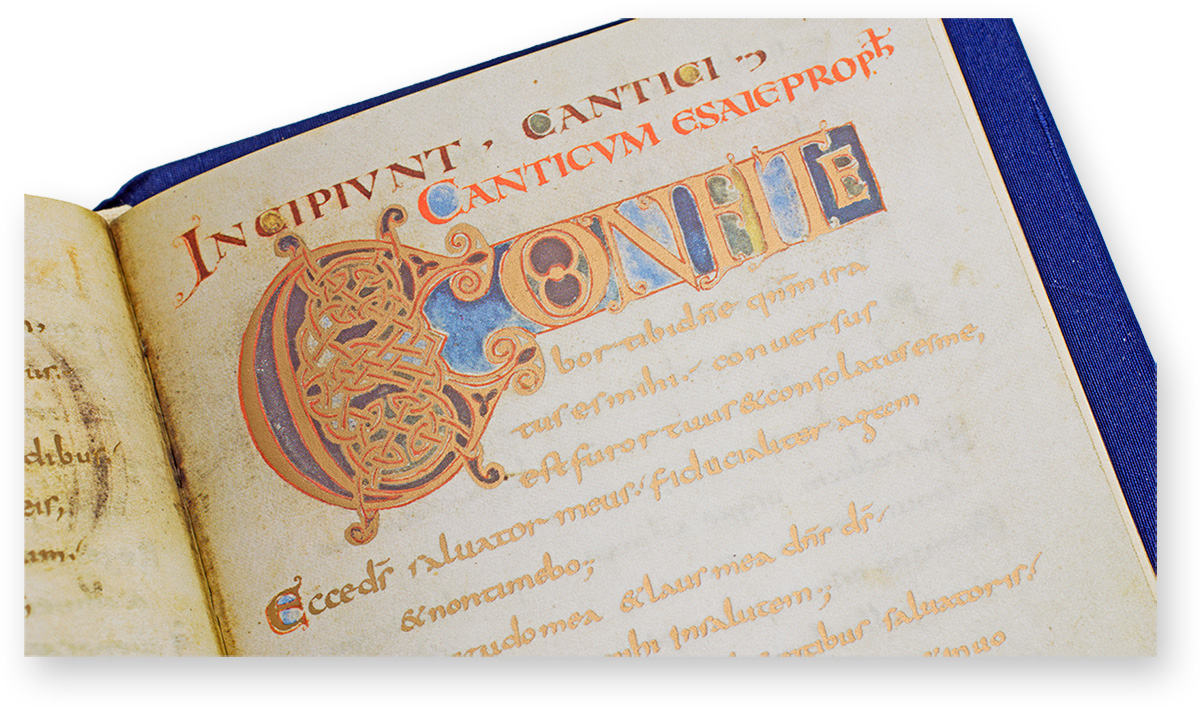 INCIPIVNT, CANTICI
CANTICVM ESAIE PROPħ
CONFITE
bor tibi dñe qnm̄ ira
tus es mihi; conuersus
est furor tuus & consolatus es me,
Ecce ds̄ saluator meus; fiducialiter agam
& non timebo;
tudo mea & laus mea dn̄s ds̄;
mihi In salutem;
tibus saluatoris;
in uo
dibus
eis,
um.